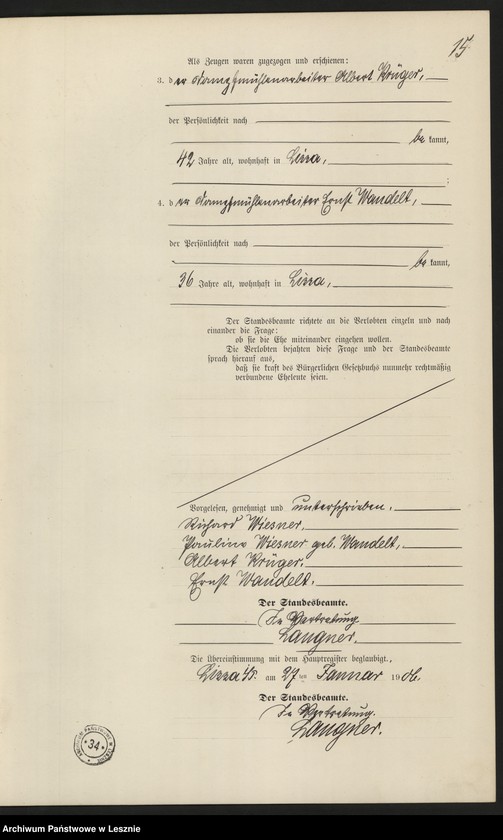 15.
Als Zeugen waren zugezogen und erschienen:
3. der Dampfmühlenarbeiter Albert Krüger,
der Persönlichkeit nach
bekannt,
42 Jahre alt, wohnhaft in Lissa,
;
4. der Dampfmühlenarbeiter Ernst Wandelt,
der Persönlichkeit nach
bekannt,
36 Jahre alt, wohnhaft in Lissa,
Der Standesbeamte richtete an die Verlobten einzeln und nach
einander die Frage:
ob sie die Ehe miteinander eingehen wollen.
Die Verlobten bejahten diese Frage und der Standesbeamte
sprach hierauf aus,
daß sie kraft des Bürgerlichen Gesetzbuchs nunmehr rechtmäßig
verbundene Eheleute seien.
Vorgelesen, genehmigt und unterschrieben.
Richard Wiesner,
Pauline Wiesner geb. Wandelt,
Albert Krüger.
Ernst Wandelt.
Der Standesbeamte.
In Vertretung.
Langner.
Die Übereinstimmung mit dem Hauptregister beglaubigt.
Lissa am 27ten Januar 1906.
Der Standesbeamte.
In Vertretung.
Langner.
ARCHIWUM PAŃSTWOWE W LESZNIE
34
Archiwum Państwowe w Lesznie